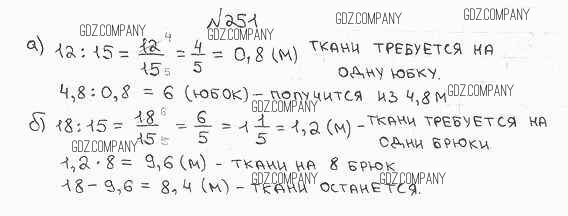 №251
GDZ.COMPANY GDZ.COMPANY GDZ.COMPANY
а) 12 : 15 = 12/15 4 5 = 4/5 = 0,8 (м) ткани требуется на
GDZ.COMPANY
одну юбку.
4,8 : 0,8 = 6 (юбок) – получится из 4,8 м
GDZ.COMPANY GDZ.COMPANY
б) 18 : 15 = 18/15 6 5 = 6/5 = 1 1/5 = 1,2 (м) – ткани требуется на
одни брюки.
GDZ.COMPANY
1,2 · 8 = 9,6 (м) – ткани на 8 брюк
18 – 9,6 = 8,4 (м) – ткани останется.
GDZ.COMPANY GDZ.COMPANY